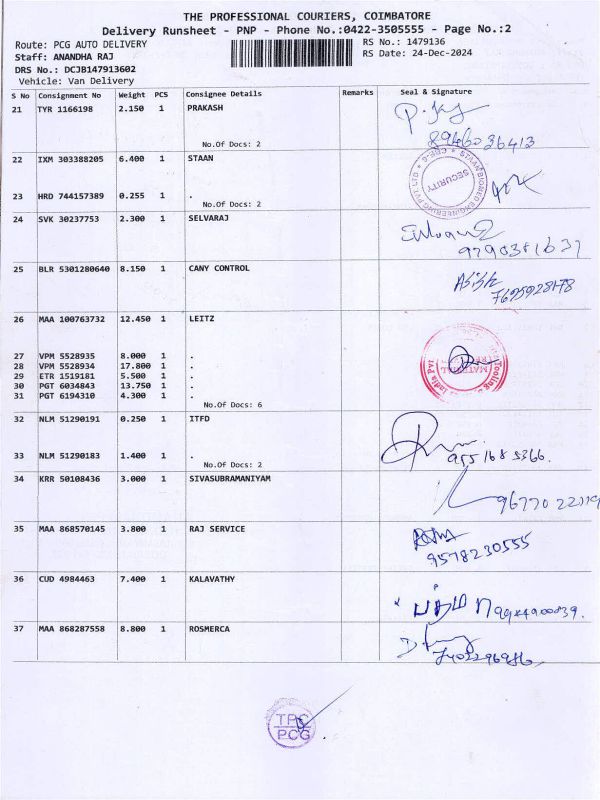 THE PROFESSIONAL COURIERS, COIMBATORE
Delivery Runsheet - PNP - Phone No.:0422-3505555 - Page No.:2
Route: PCG AUTO DELIVERY
RS No.: 1479136
Staff: ANANDHA RAJ
RS Date: 24-Dec-2024
DRS No.: DCJB147913602
Vehicle: Van Delivery
S No Consignment No Weight PCS Consignee Details Remarks Seal & Signature
21 TYR 1166198 2.150 1 PRAKASH
No.Of Docs: 2
8946036413
22 IXM 303388205 6.400 1 STAAN
STAAN BIOMED ENGINEERING PVT LTD
SECURITY
23 HRD 744157389 0.255 1 .
No.Of Docs: 2
24 SVK 30237753 2.300 1 SELVARAJ
25 BLR 5301280640 8.150 1 CANY CONTROL
26 MAA 100763732 12.450 1 LEITZ
27 VPM 5528935 8.000 1 .
28 VPM 5528934 17.800 1 .
29 ETR 1519181 5.500 1 .
30 PGT 6034843 13.750 1 .
31 PGT 6194310 4.300 1 .
No.Of Docs: 6
Tooling
MATERIAL
32 NLM 51290191 0.250 1 ITFD
33 NLM 51290183 1.400 1 .
9551685366.
No.Of Docs: 2
34 KRR 50108436 3.000 1 SIVASUBRAMANIYAM
35 MAA 868570145 3.800 1 RAJ SERVICE
9578230555
36 CUD 4984463 7.400 1 KALAVATHY
37 MAA 868287558 8.800 1 ROSMERCA
TPC
PCG